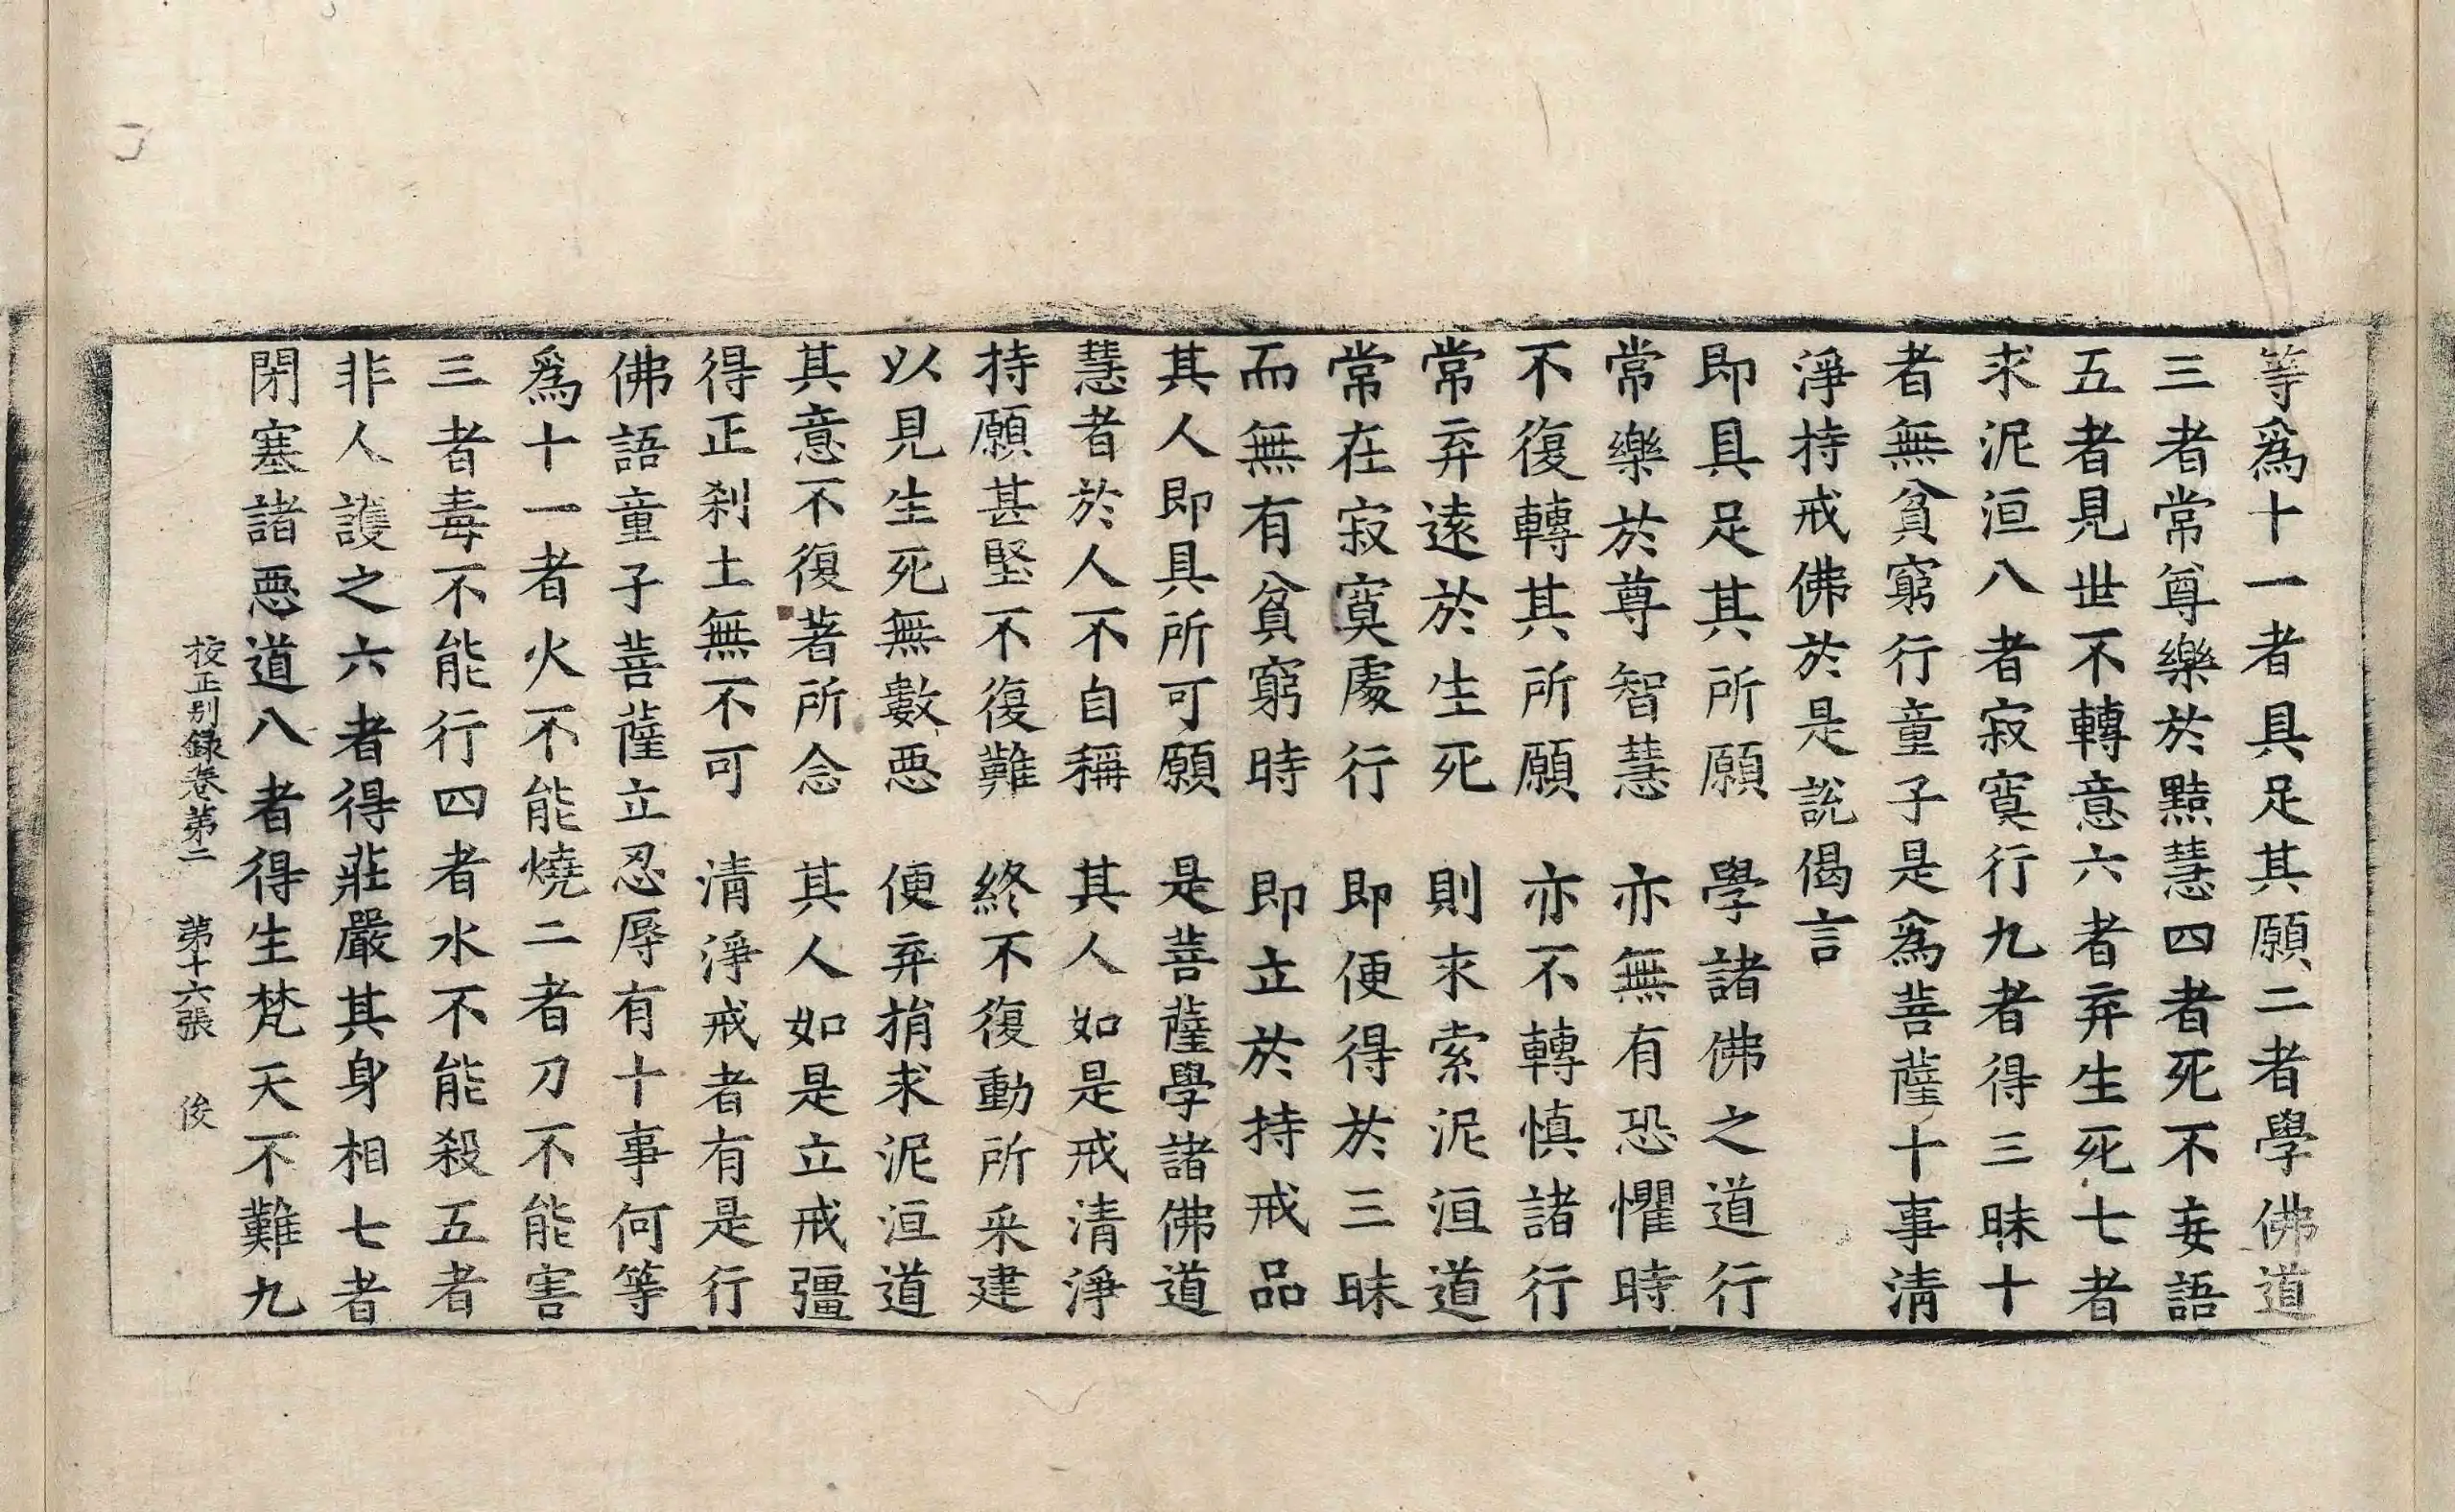 等爲十一者具足其願二者學佛道
三者常尊樂於黠慧四者死不妄語
五者見世不轉意六者弃生死七者
求泥洹八者寂寞行九者得三昧十
者無貧窮行童子是爲菩薩十事清
淨持戒佛於是說偈言
即具足其所願　學諸佛之道行
常樂於尊智慧　亦無有恐懼時
不復轉其所願　亦不轉慎諸行
常弃遠於生死　則求索泥洹道
常在寂寞處行　即便得於三昧
而無有貧窮時　即立於持戒品
其人即具所可願　是菩薩學諸佛道
慧者於人不自稱　其人如是戒清淨
持願甚堅不復難　終不復動所采建
以見生死無數惡　便弃捐求泥洹道
其意不復著所念　其人如是立戒彊
得正刹土無不可　清淨戒者有是行
佛語童子菩薩立忍辱有十事何等
爲十一者火不能燒二者刀不能害
三者毒不能行四者水不能殺五者
非人護之六者得莊嚴其身相七者
閇塞諸惡道八者得生梵天不難九
校正別録卷第二　第十六張　俟